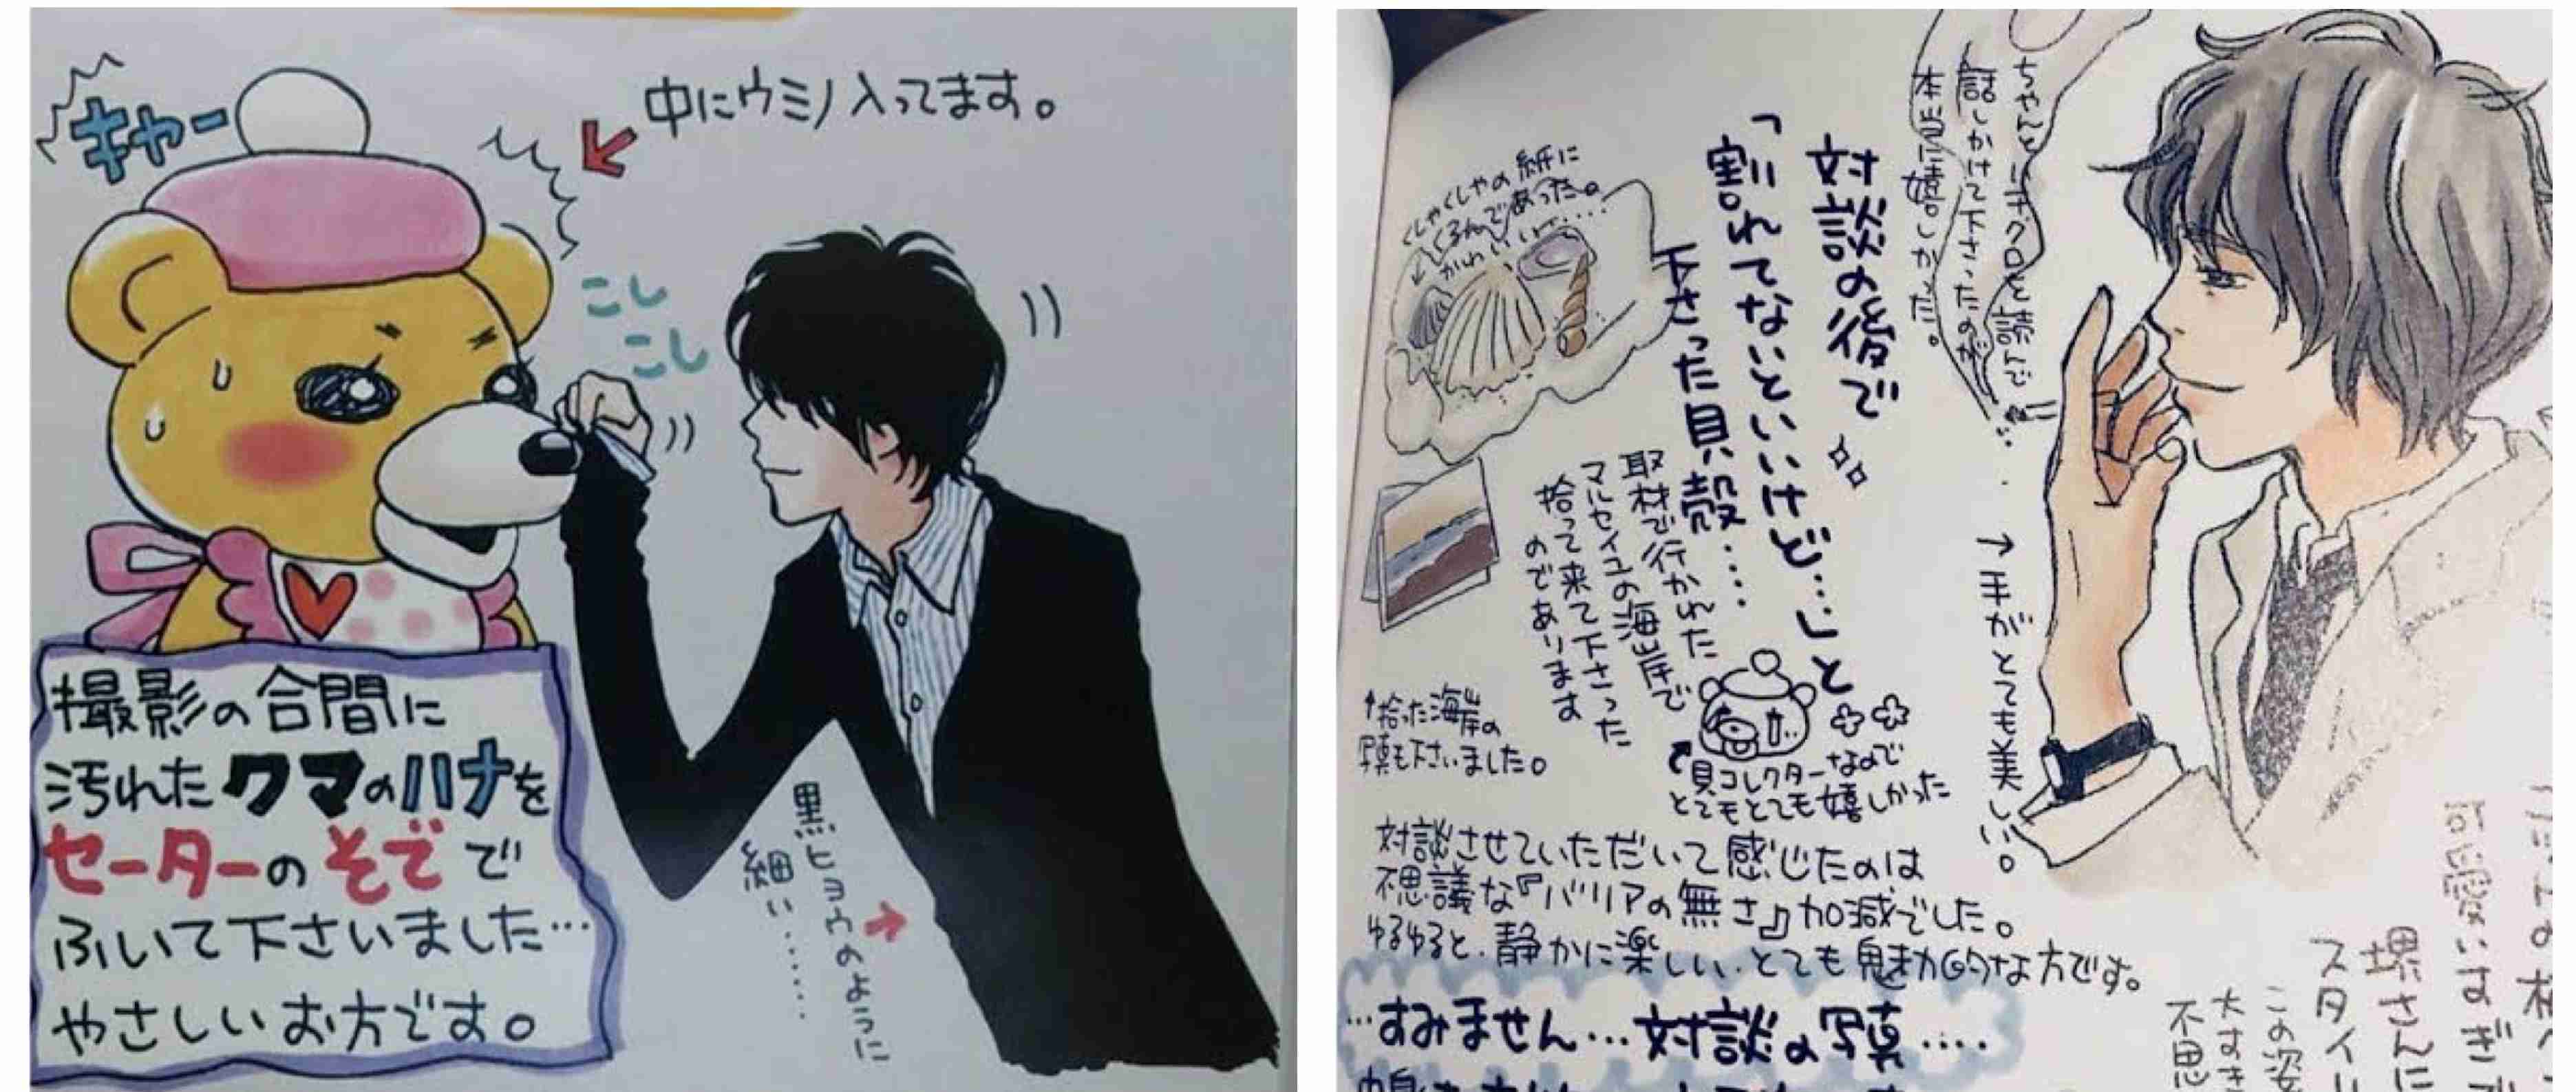 キャー
中にウミノ入ってます。
こし
こし
撮影の合間に
汚れたクマのハナを
セーターのそでで
ふいて下さいました…
やさしいお方です。
黒ヒョウのように
細い……
ちゃんとハチクロを読んで
話しかけて下さったのが
本当に嬉しかった。
対談の後で
「割れてないといいけど…」と
下さった貝殻……
くしゃくしゃの紙に
くるんであった。
かわいい….
取材で行かれた
マルセイユの海岸で
拾って来て下さった
のであります
↑拾った海岸の
写真も下さいました。
貝コレクターなので
とてもとても嬉しかった
→手がとても美しい。
対談させていただいて感じたのは
不思議な『バリアの無さ』加減でした。
ゆるゆると、静かに楽しい、とても魅力的な方です。
…すみません…対談の写真….
可愛いすぎ
堺さんに
スタイ
この姿
大すき
不思